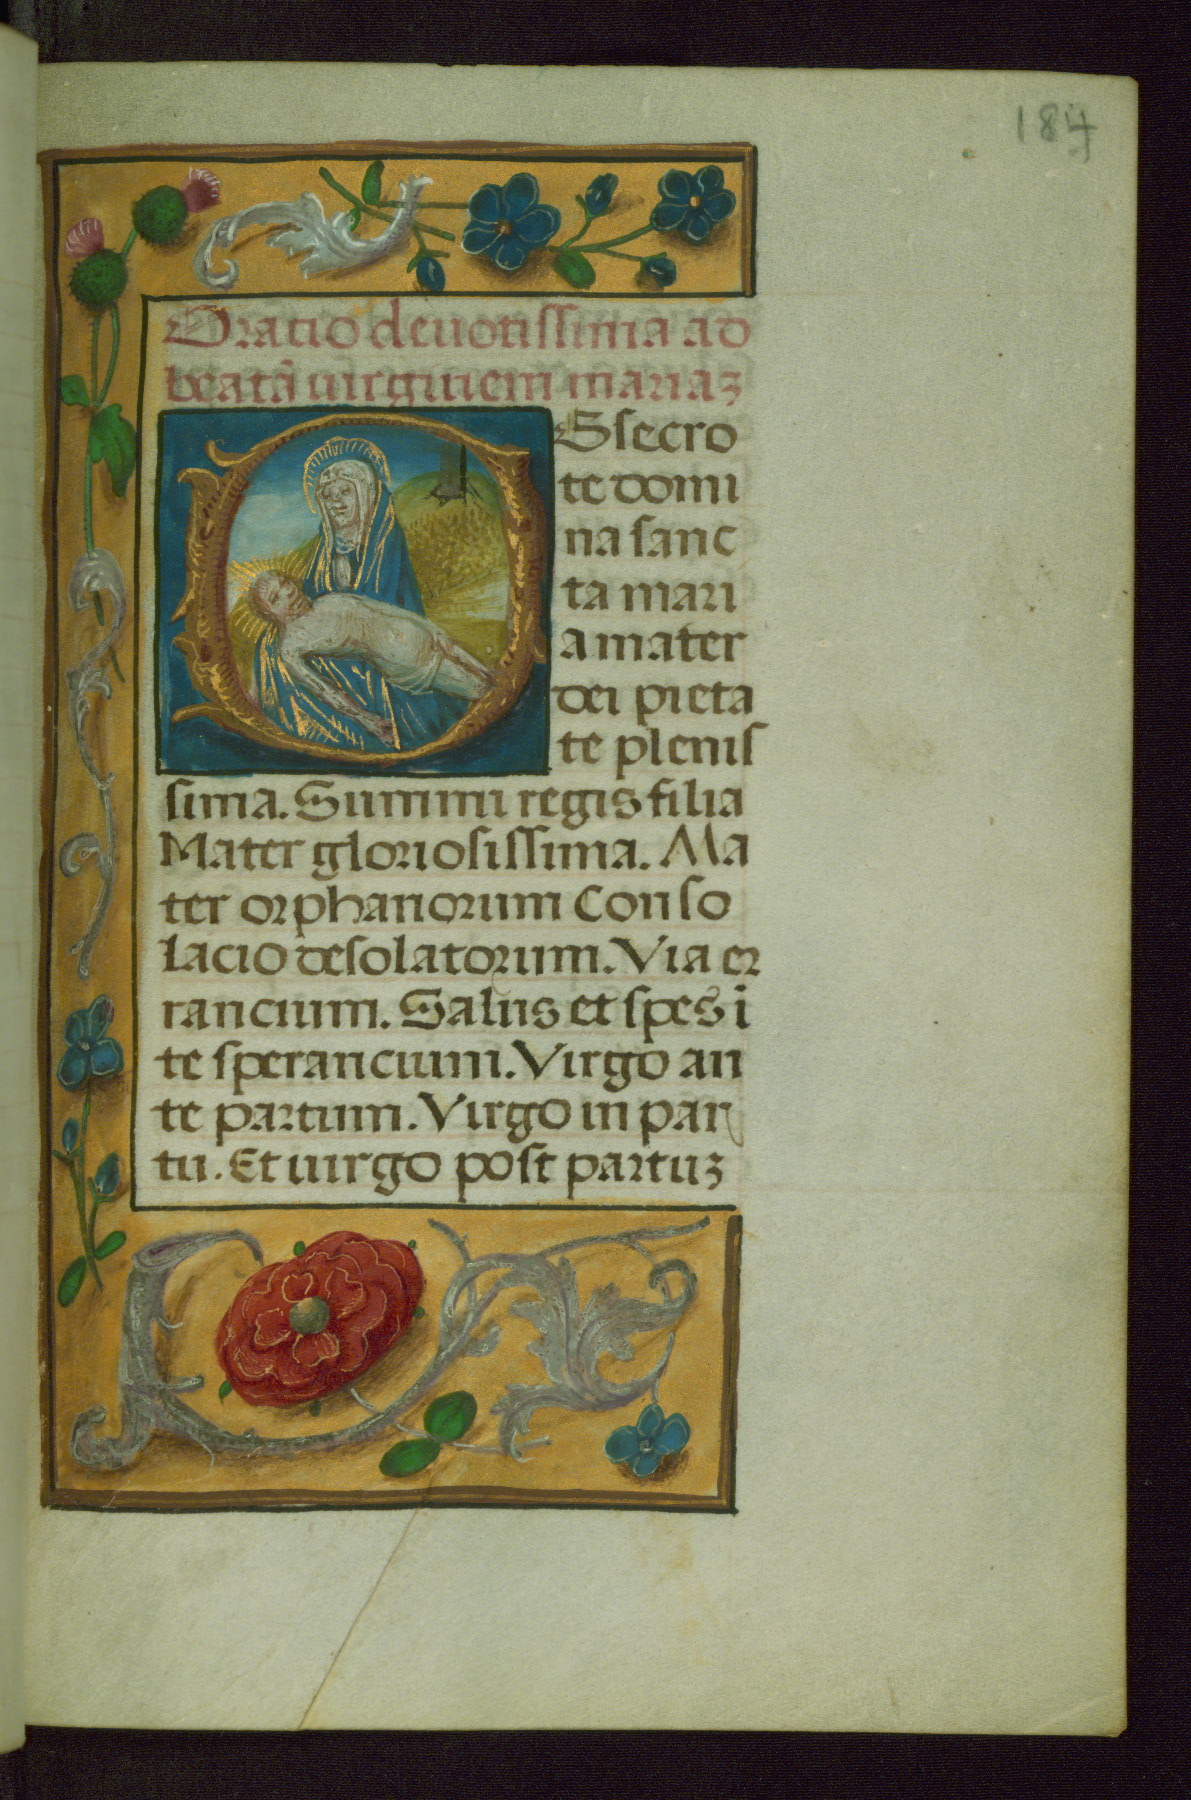 Oratio deuotissima ad
beatā uirginem mariaʒ
OBsecro
te domi
na sanc
ta mari
a mater
dei pieta
te plenis
sima. Summi regis filia
Mater gloriosissima. Ma
ter orphanorum Conso
lacio desolatorum. Via er
rancium. Salus et spes ī
te sperancium. Virgo an
te partum. Virgo in par
tu. Et uirgo post partuʒ